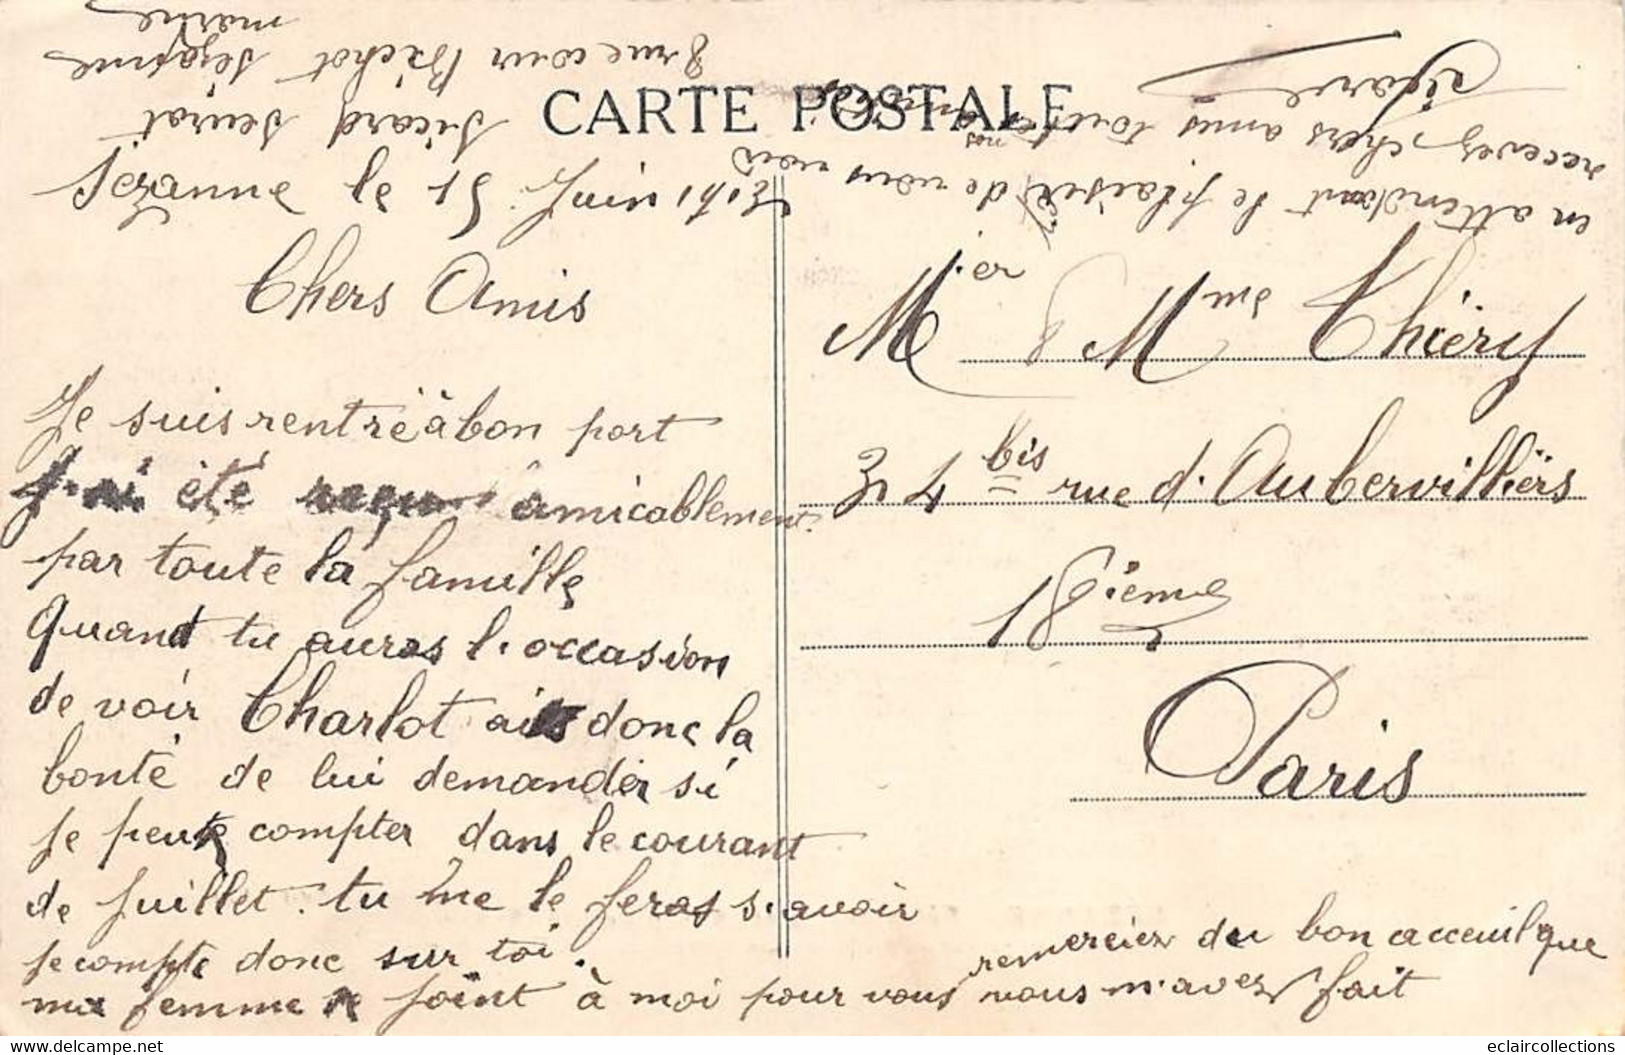 CARTE POSTALE
Sézanne le 15 Juin 1921
Chers Amis
Je suis rentré à bon port
J'ai été reçu amicablement
par toute la famille
Quand tu auras l'occasion
de voir Charlot ais donc la
bonté de lui demander si
je peut compter dans le courant
de Juillet. tu me le feras s'avoir
je compte donc sur toi.
ma femme se joint à moi pour vous remercier du bon acceuil que
vous m'avez fait
en attendant le plaisir de vous voir
recevez chers amis toutes nos
Sicard
Sicard Seurat
8 rue cour Bichot Sézanne
marne
Mier & Mme Thiéry
34 bis rue d'Aubervilliers
18ième
Paris
www.delcampe.net
eclaircollections